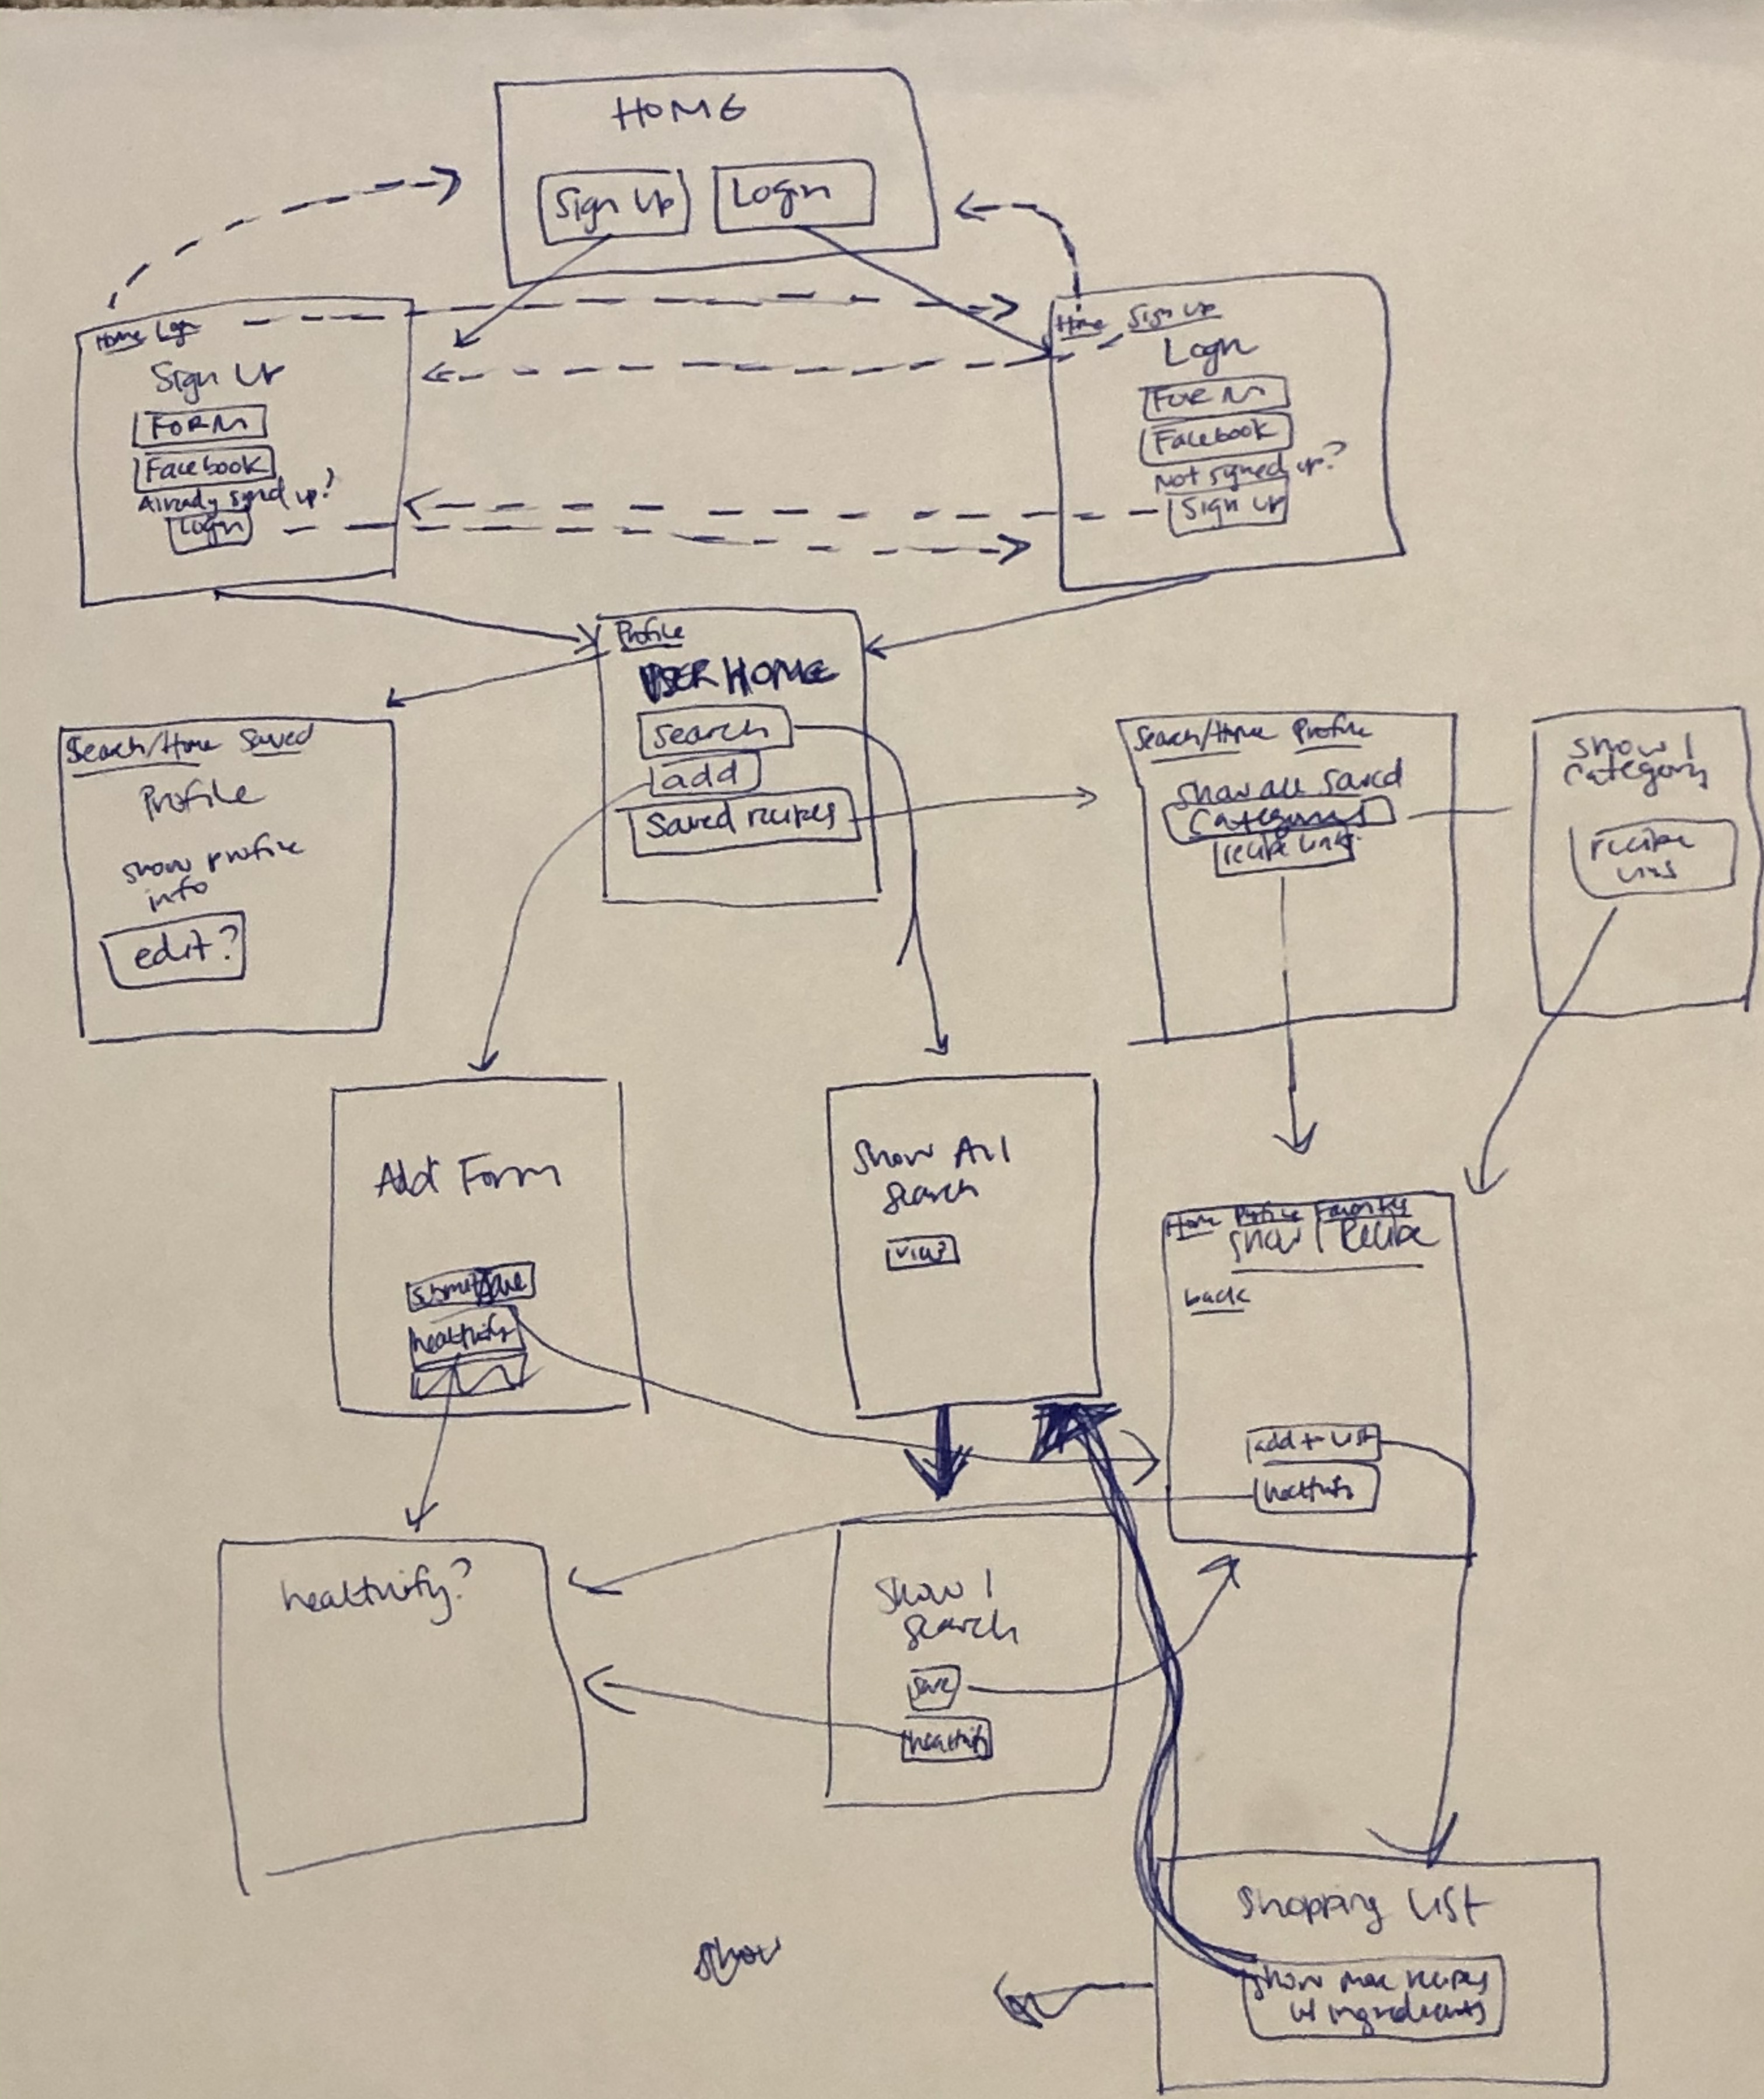 HOME
Sign Up
Login
Home Login
Sign Up
FORM
Facebook
Already signed up?
Login
Home Sign Up
Login
FORM
Facebook
Not signed up?
Sign Up
Profile
USER HOME
search
add
Saved recipes
Search/Home Saved
Profile
show profile
info
edit?
Search/Home Profile
Show all Saved
Categories
recipe links
show 1
Category
recipe
links
Add Form
submit
healthify
Show All
Search
view
Home Profile Favorites
Show 1 Recipe
back
add to list
healthify
healthify?
Show 1
Search
save
healthify
Show
Shopping List
Show more recipes
w/ ingredients